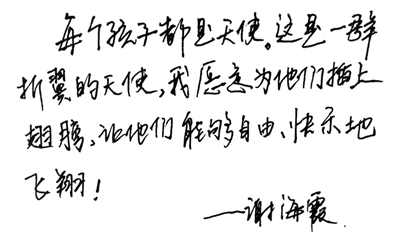 每个孩子都是天使。这是一群
折翼的天使，我愿意为他们插上
翅膀，让他们能够自由、快乐地
飞翔！
——谢海霞